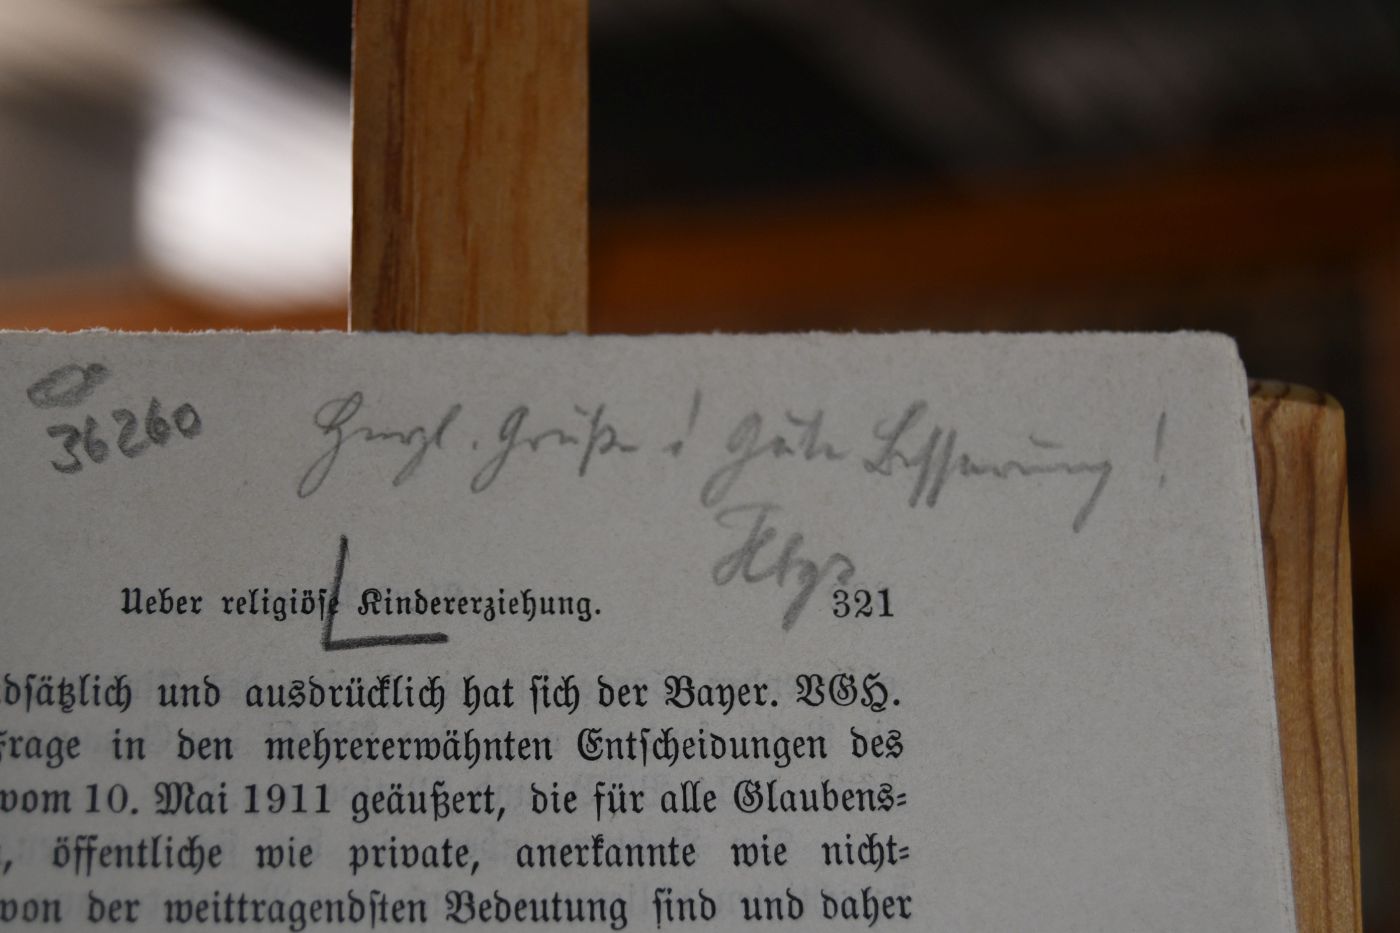 36260
Herzl. Grüße! Gute Besserung!
Ueber religiöse Kindererziehung. 321
dsätzlich und ausdrücklich hat sich der Bayer. VGH.
Frage in den mehrererwähnten Entscheidungen des
vom 10. Mai 1911 geäußert, die für alle Glaubens-
, öffentliche wie private, anerkannte wie nicht-
von der weittragendsten Bedeutung sind und daher